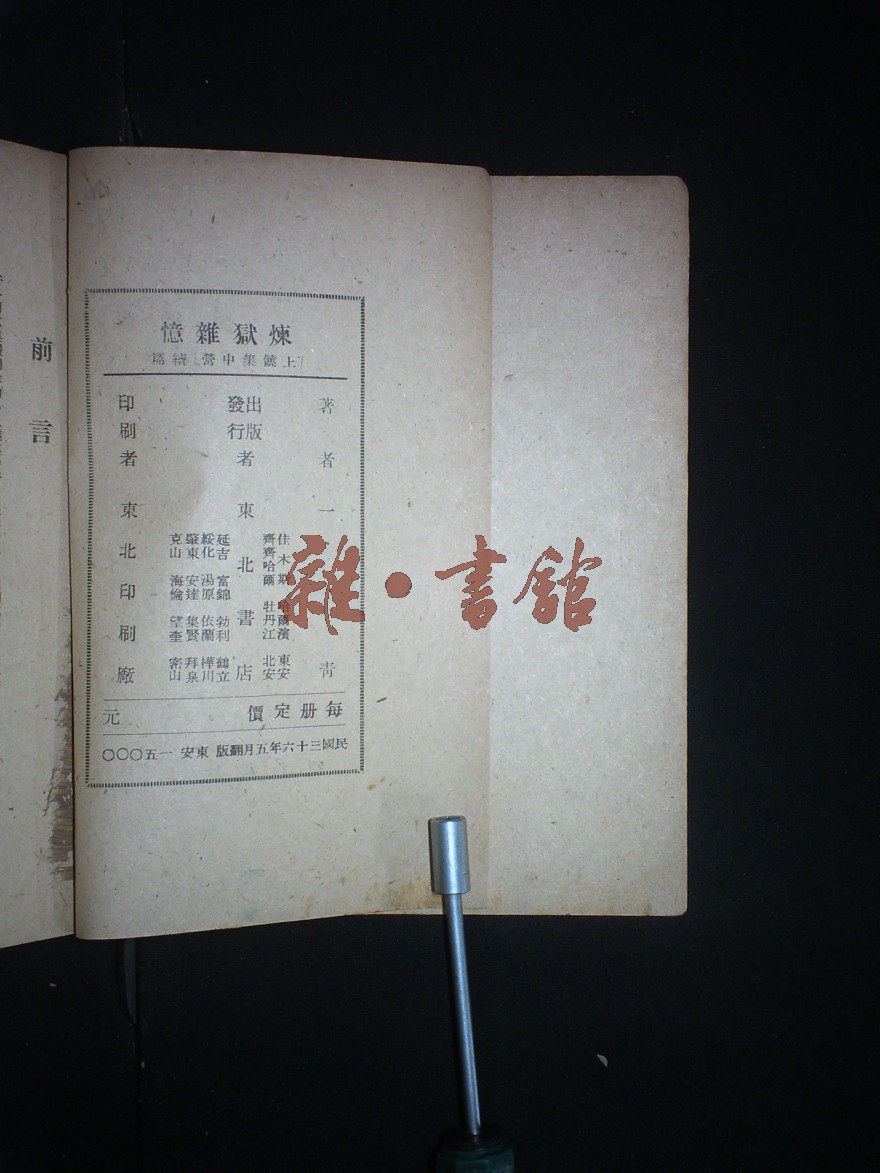 煉獄雜憶
上饒集中營續篇
著者 一 青
出版
發行者 東北書店
佳木斯 哈爾濱 東安
齊齊哈爾 牡丹江 北安
延吉 富錦 勃利 鶴立
綏化 湯原 依蘭 樺川
肇東 安達 集賢 拜泉
克山 海倫 望奎 密山
印刷者 東北印刷廠
每册定價 元
民國三十六年五月翻版 東安 一五〇〇〇
前言
雜·書館